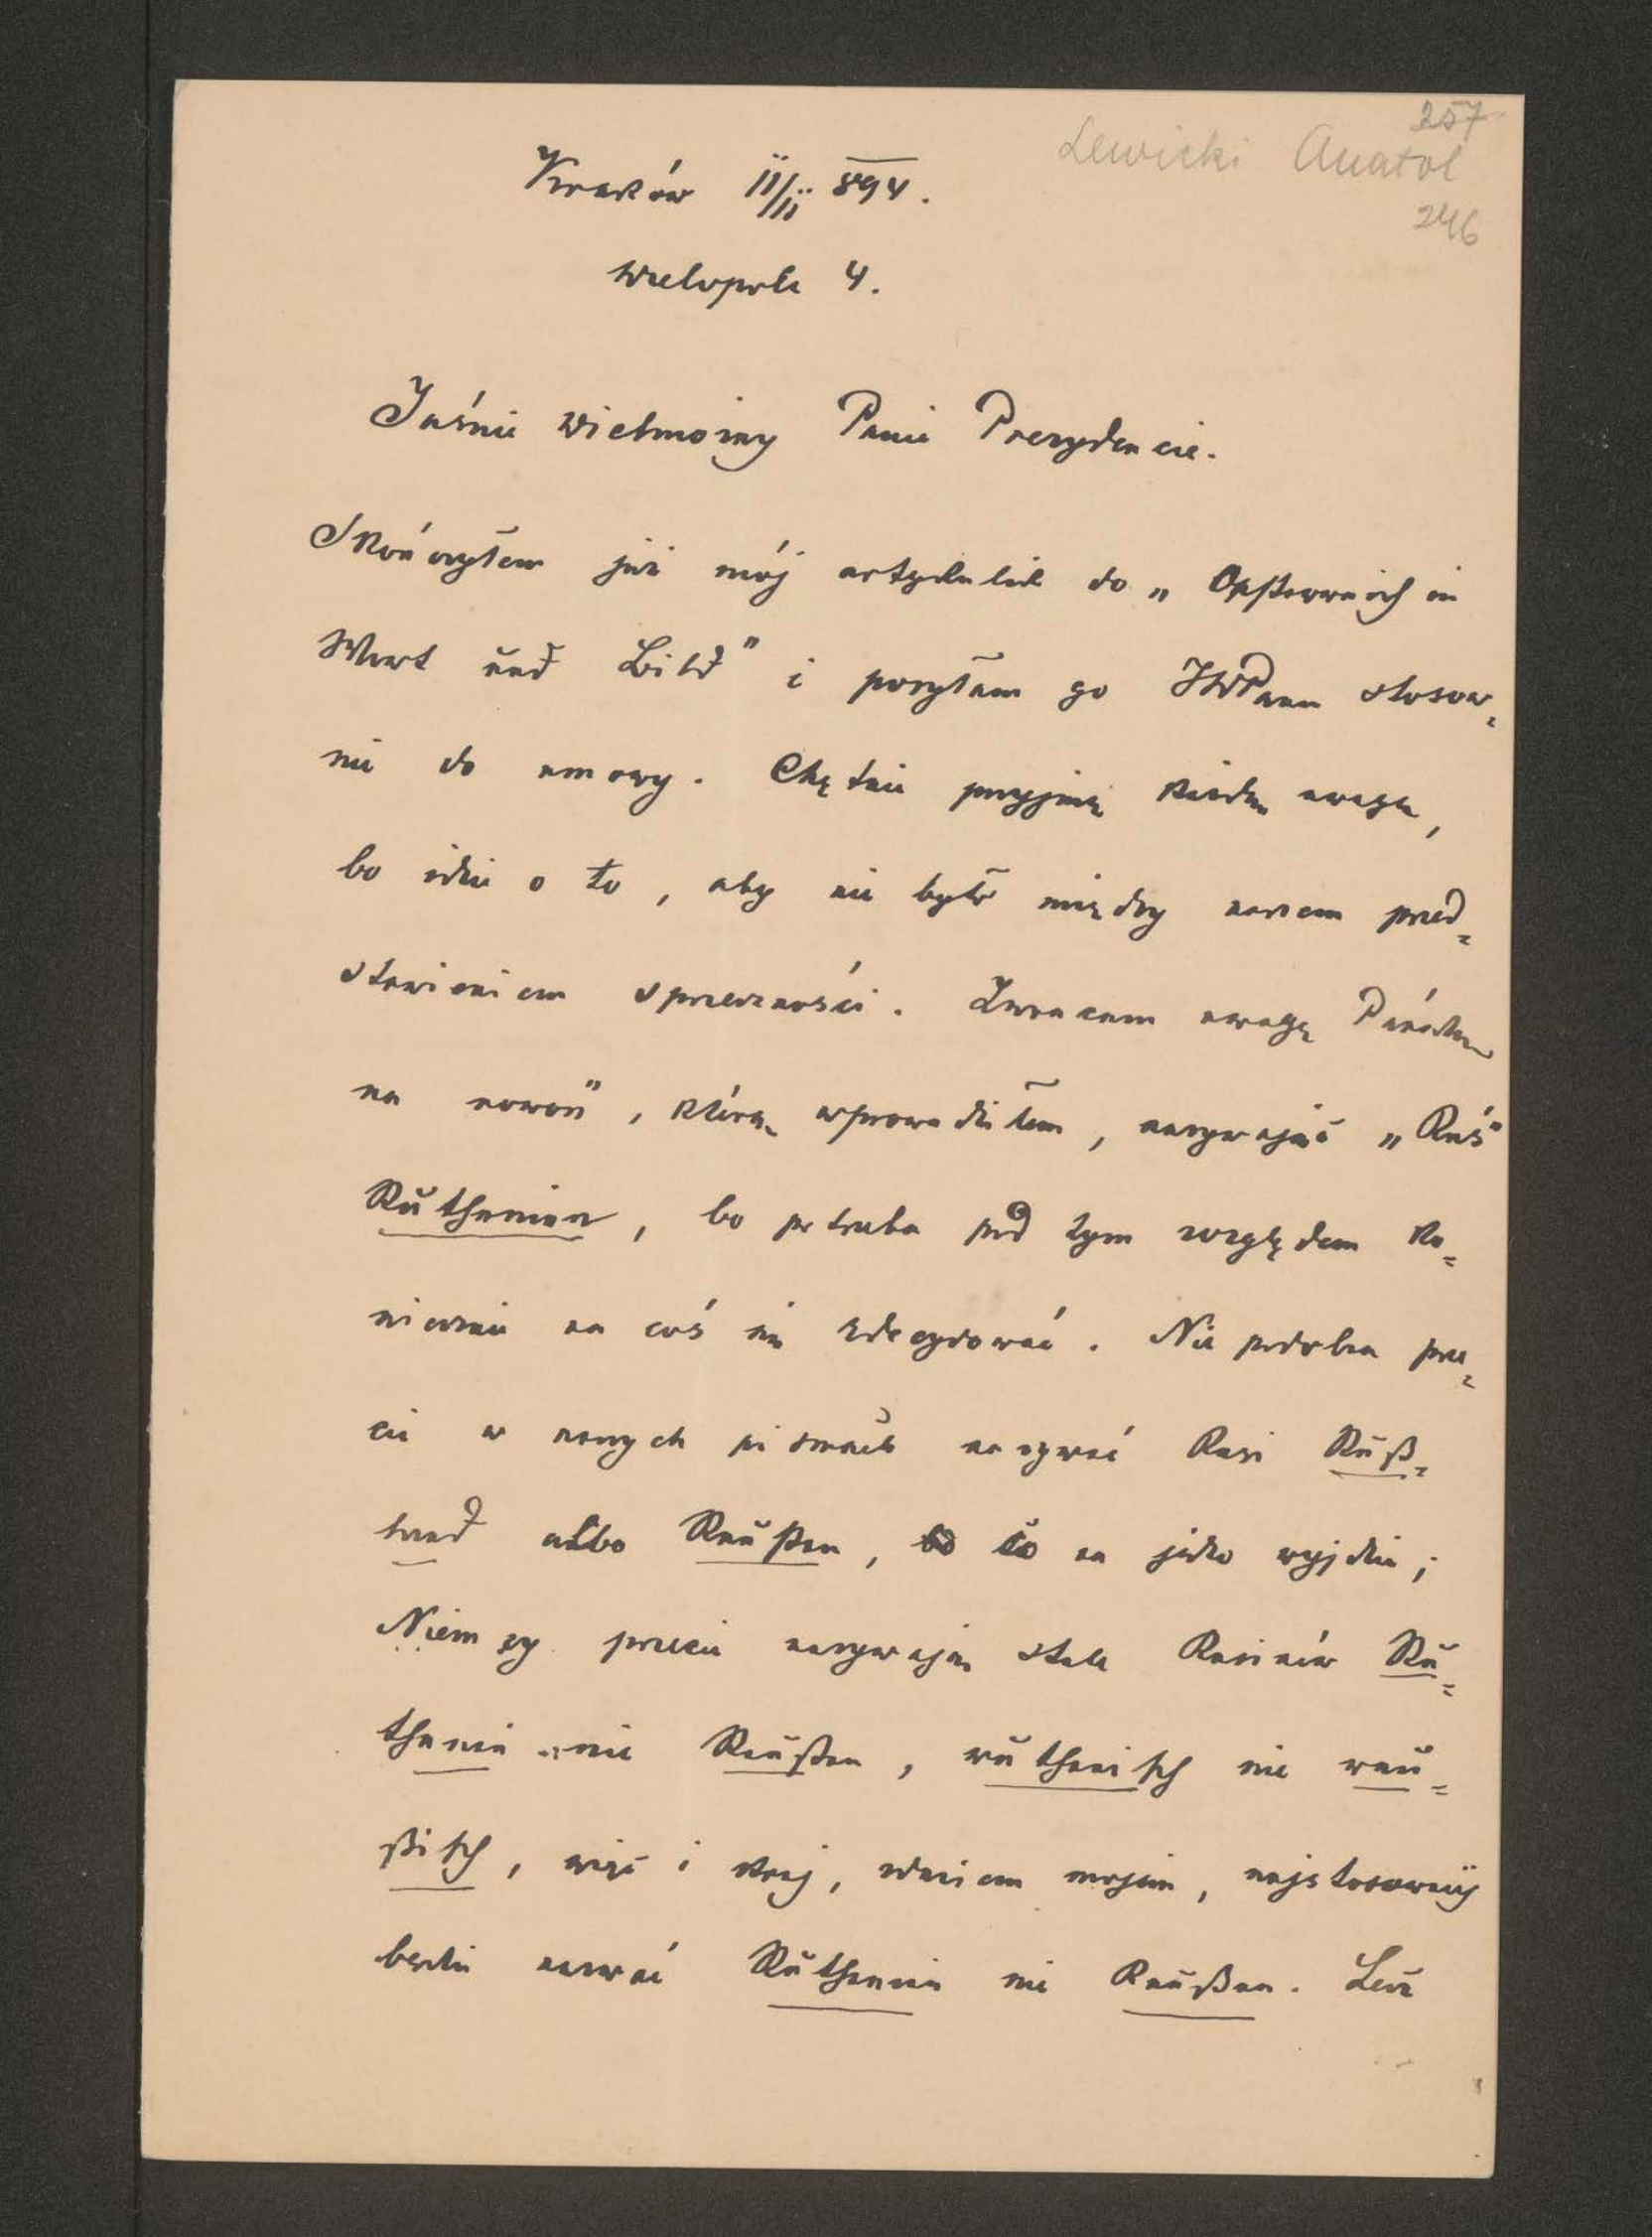 257
Lewicki Anatol
246
Kraków 11/11 894.
Wielopole 4.
Jaśnie Wielmożny Panie Prezydencie.
Skończyłem już mój artykulik do „Oesterreich in
Wort und Bild" i posyłam go JWPanu stosow=
nie do umowy. Chętnie przyjmę każdą uwagę,
bo idzie o to, aby nie było między naszem przed=
stawieniem sprzeczności. Zwracam uwagę Pańską
na nowość, którą wprowadziłem, nazywając „Ruś"
Ruthenien, bo potrzeba pod tym względem ko=
niecznie na coś się zdecydować. Nie podobna prze=
cie w naszych pismach nazywać Rusi Ruß=
land albo Reußen, bo to na jedno wyjdzie;
Niemcy przecie nazywają stale Rusinów Ru=
thenen nie Reußen, ruthenisch nie reu=
ßisch, więc i kraj, zdaniem mojem, najstosowniej
będzie nazwać Ruthenien nie Reußen. Lecz